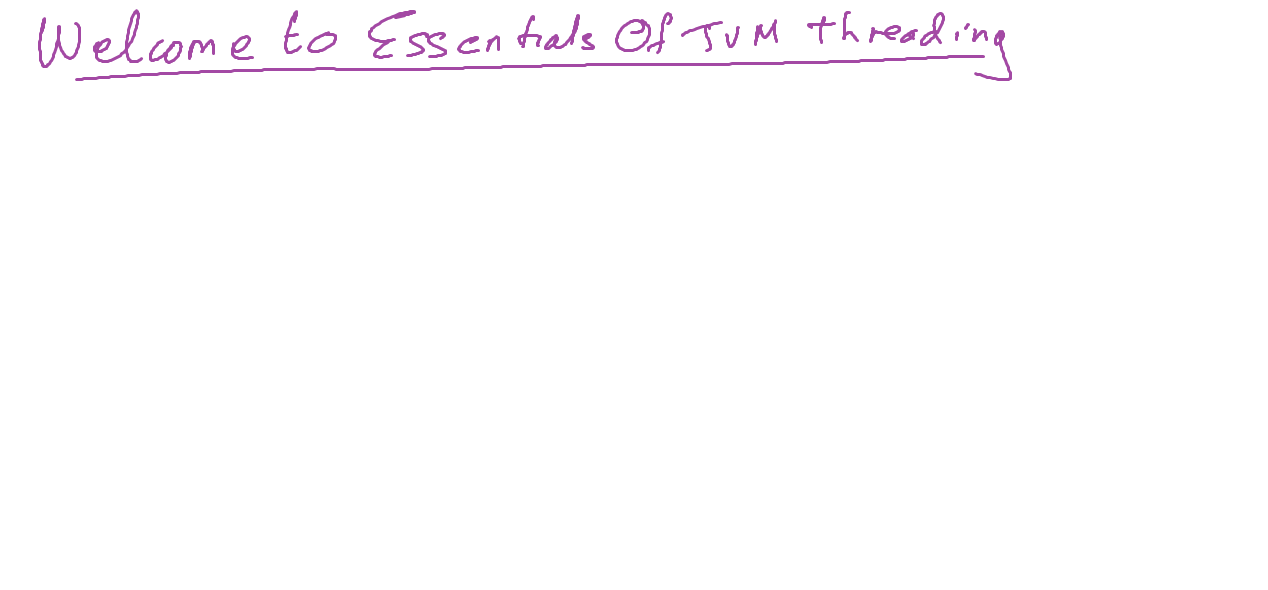 Welcome to Essentials Of JVM threading